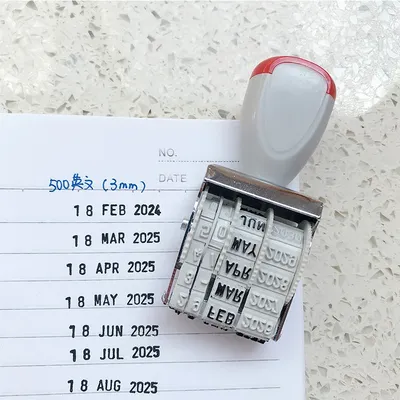 NO.
DATE
500英文(3mm)
18 FEB 2024
18 MAR 2025
18 APR 2025
18 MAY 2025
18 JUN 2025
18 JUL 2025
18 AUG 2025
JUN
MAY
APR
MAR
FEB